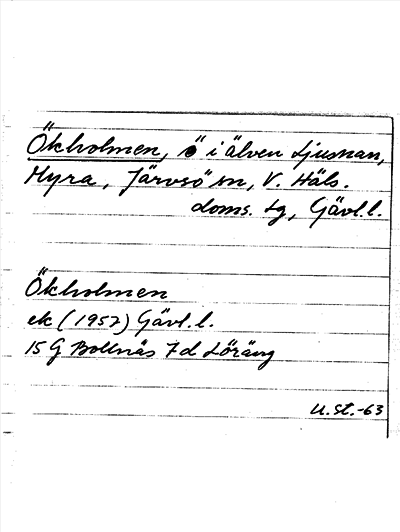 Ökholmen, ö i älven Ljusnan,
Myra, Järvsö sn, V. Häls.
doms. lg, Gävl.l.
Ökholmen
ek (1957) Gävl.l.
15 G Bollnäs 7d Löräng
U.St.-63